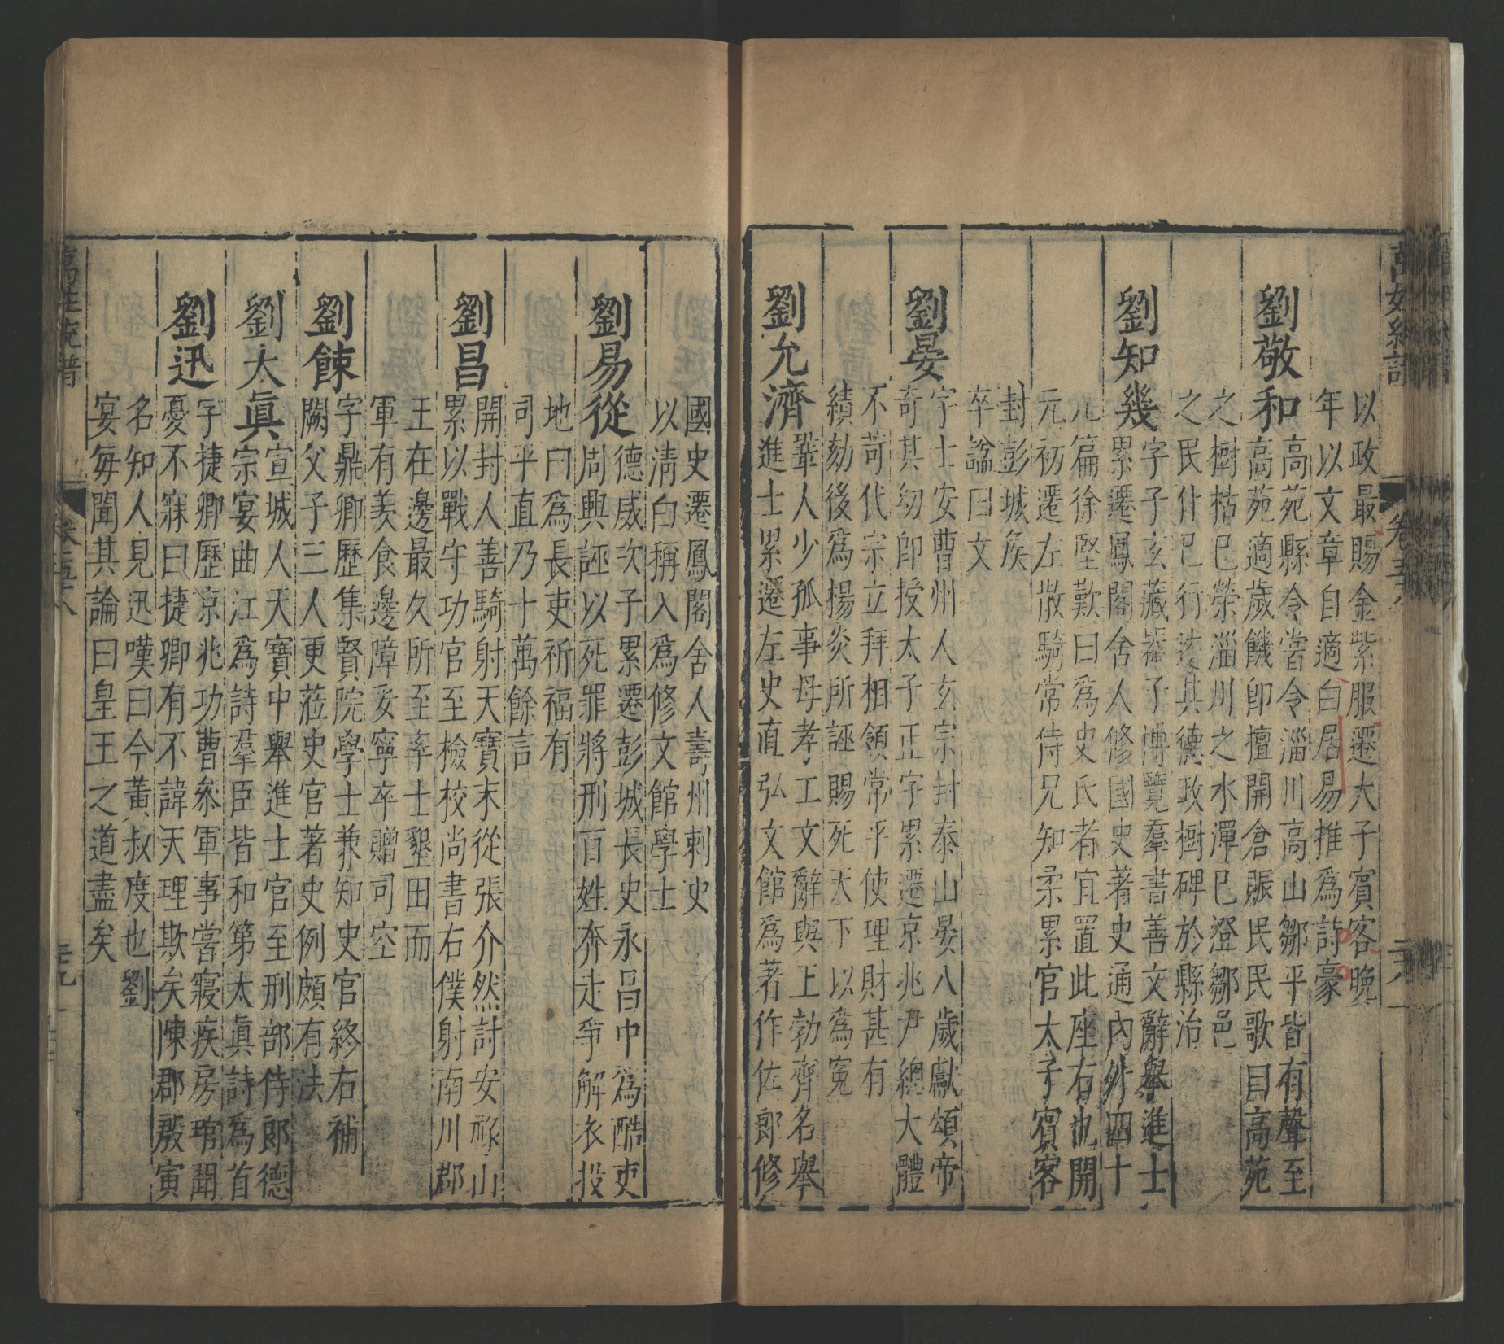 萬姓統譜
卷五十八
以政最賜金紫服遷太子賓客晚
年以文章自適白居易推爲詩豪
劉敬和
高苑縣令嘗令淄川高山鄒平皆有聲至
高苑適歲饑卽擅開倉賑民民歌曰高苑
之樹枯巳榮淄川之水渾巳澄鄒邑
之民仆巳行遂其德政樹碑於縣治
劉知幾
字子玄藏器子博覽羣書善文辭舉進士
累遷鳳閣舍人修國史著史通內外四十
九篇徐堅歎曰爲史氏者宜置此座右也開
元初遷左散騎常侍兄知柔累官太子賓客
封彭城矦
卒諡曰文
劉晏
字士安曹州人玄宗封泰山晏八歲獻頌帝
奇其幼卽授太子正字累遷京兆尹總大體
不苛代宗立拜相領常平使理財甚有
績劾後爲楊炎所誣賜死天下以爲冤
劉允濟
鞏人少孤事母孝工文辭與王勃齊名舉
進士累遷左史直弘文館爲著作佐郎修
國史遷鳳閣舍人壽州刺史
以淸白稱入爲修文館學士
劉易從
德威次子累遷彭城長史永昌中爲酷吏
周興誣以死罪將刑百姓奔走爭解衣投
地曰爲長吏祈福有
司平直乃十萬餘言
劉昌
開封人善騎射天寶末從張介然討安祿山
累以戰守功官至檢校尚書右僕射南川郡
王在邊最久所至率士墾田而
軍有羨食邊障妥寧卒贈司空
劉餗
字鼎卿歷集賢院學士兼知史官終右補
闕父子三人更蒞史官著史例頗有法
劉太眞
宣城人天寶中舉進士官至刑部侍郎德
宗宴曲江爲詩羣臣皆和第太眞詩爲首
劉迅
字捷卿歷京兆功曹叅軍事嘗寢疾房琯聞
憂不寐曰捷卿有不諱天理欺矣陳郡殷寅
名知人見迅嘆曰今黃叔度也劉
宴每聞其論曰皇王之道盡矣
萬姓統譜
卷五十八